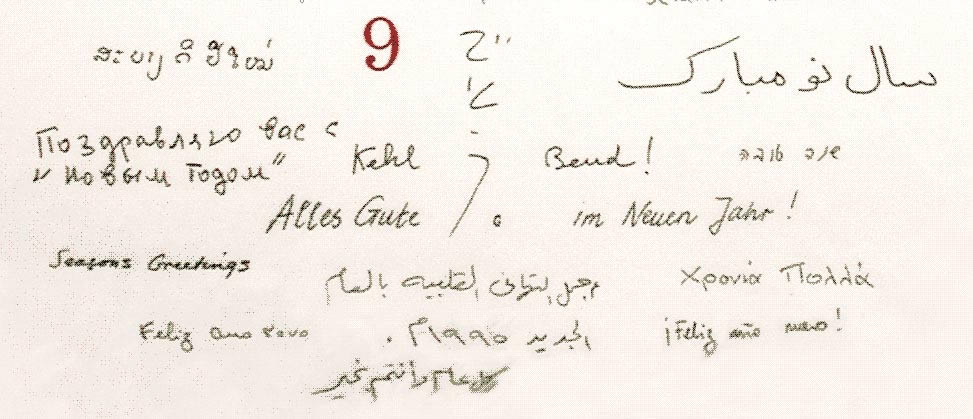 ສະບາຽ ດີ ປີໃໝ່
9
سال نو مبارک
Поздравляю вас с
"Новым Годом"
Kehl Bend!
שנה טובה
Alles Gute im Neuen Jahr!
Seasons Greetings
أجمل التهاني القلبية بالعام
Χρονιά Πολλά
Feliz ano novo
الجديد
¡Feliz año nuevo!
كل عام وأنتم بخير